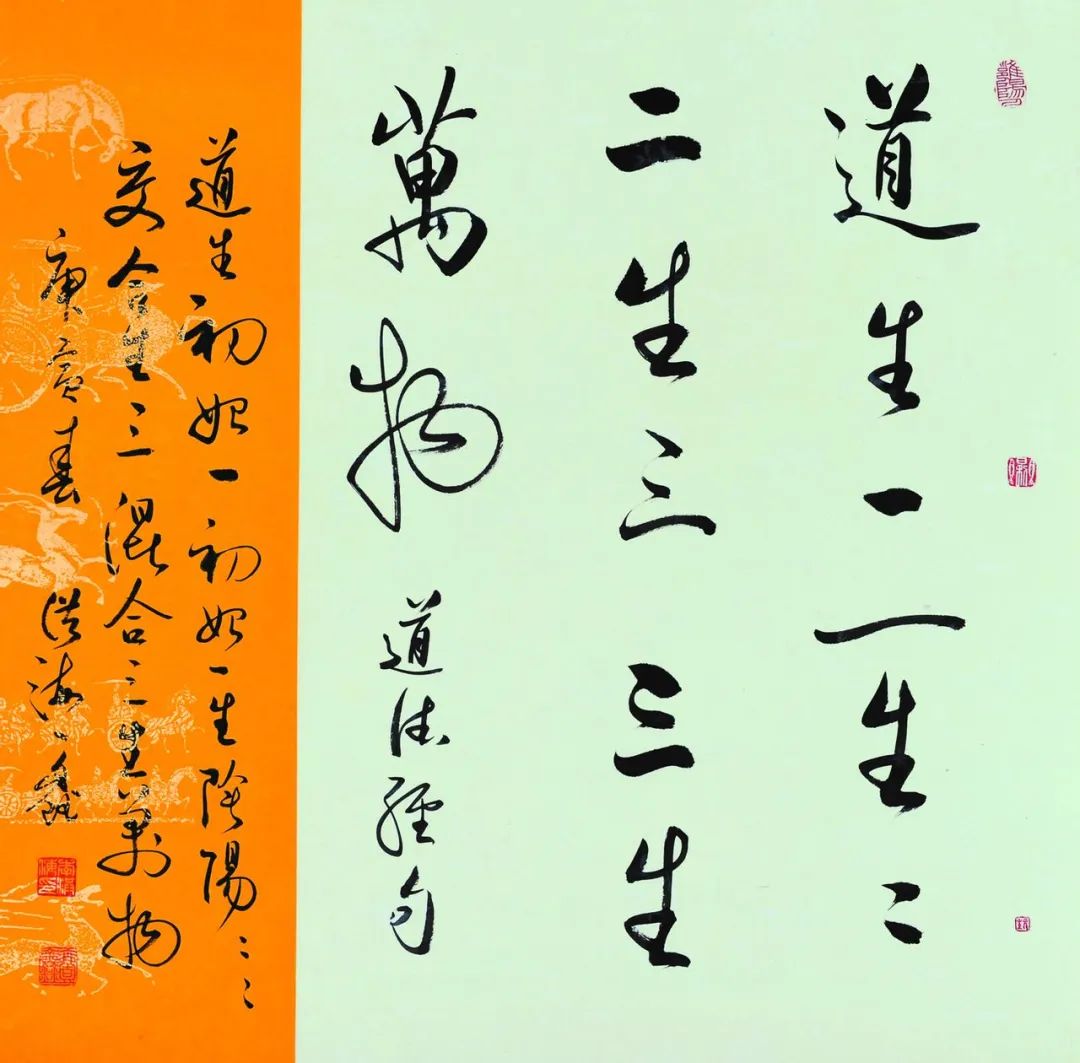 道生一一生二
二生三三生
萬物
道法經句
道生初始一初始一生陰陽二二
交合生三混合三生萬物
庚寅春
洪海